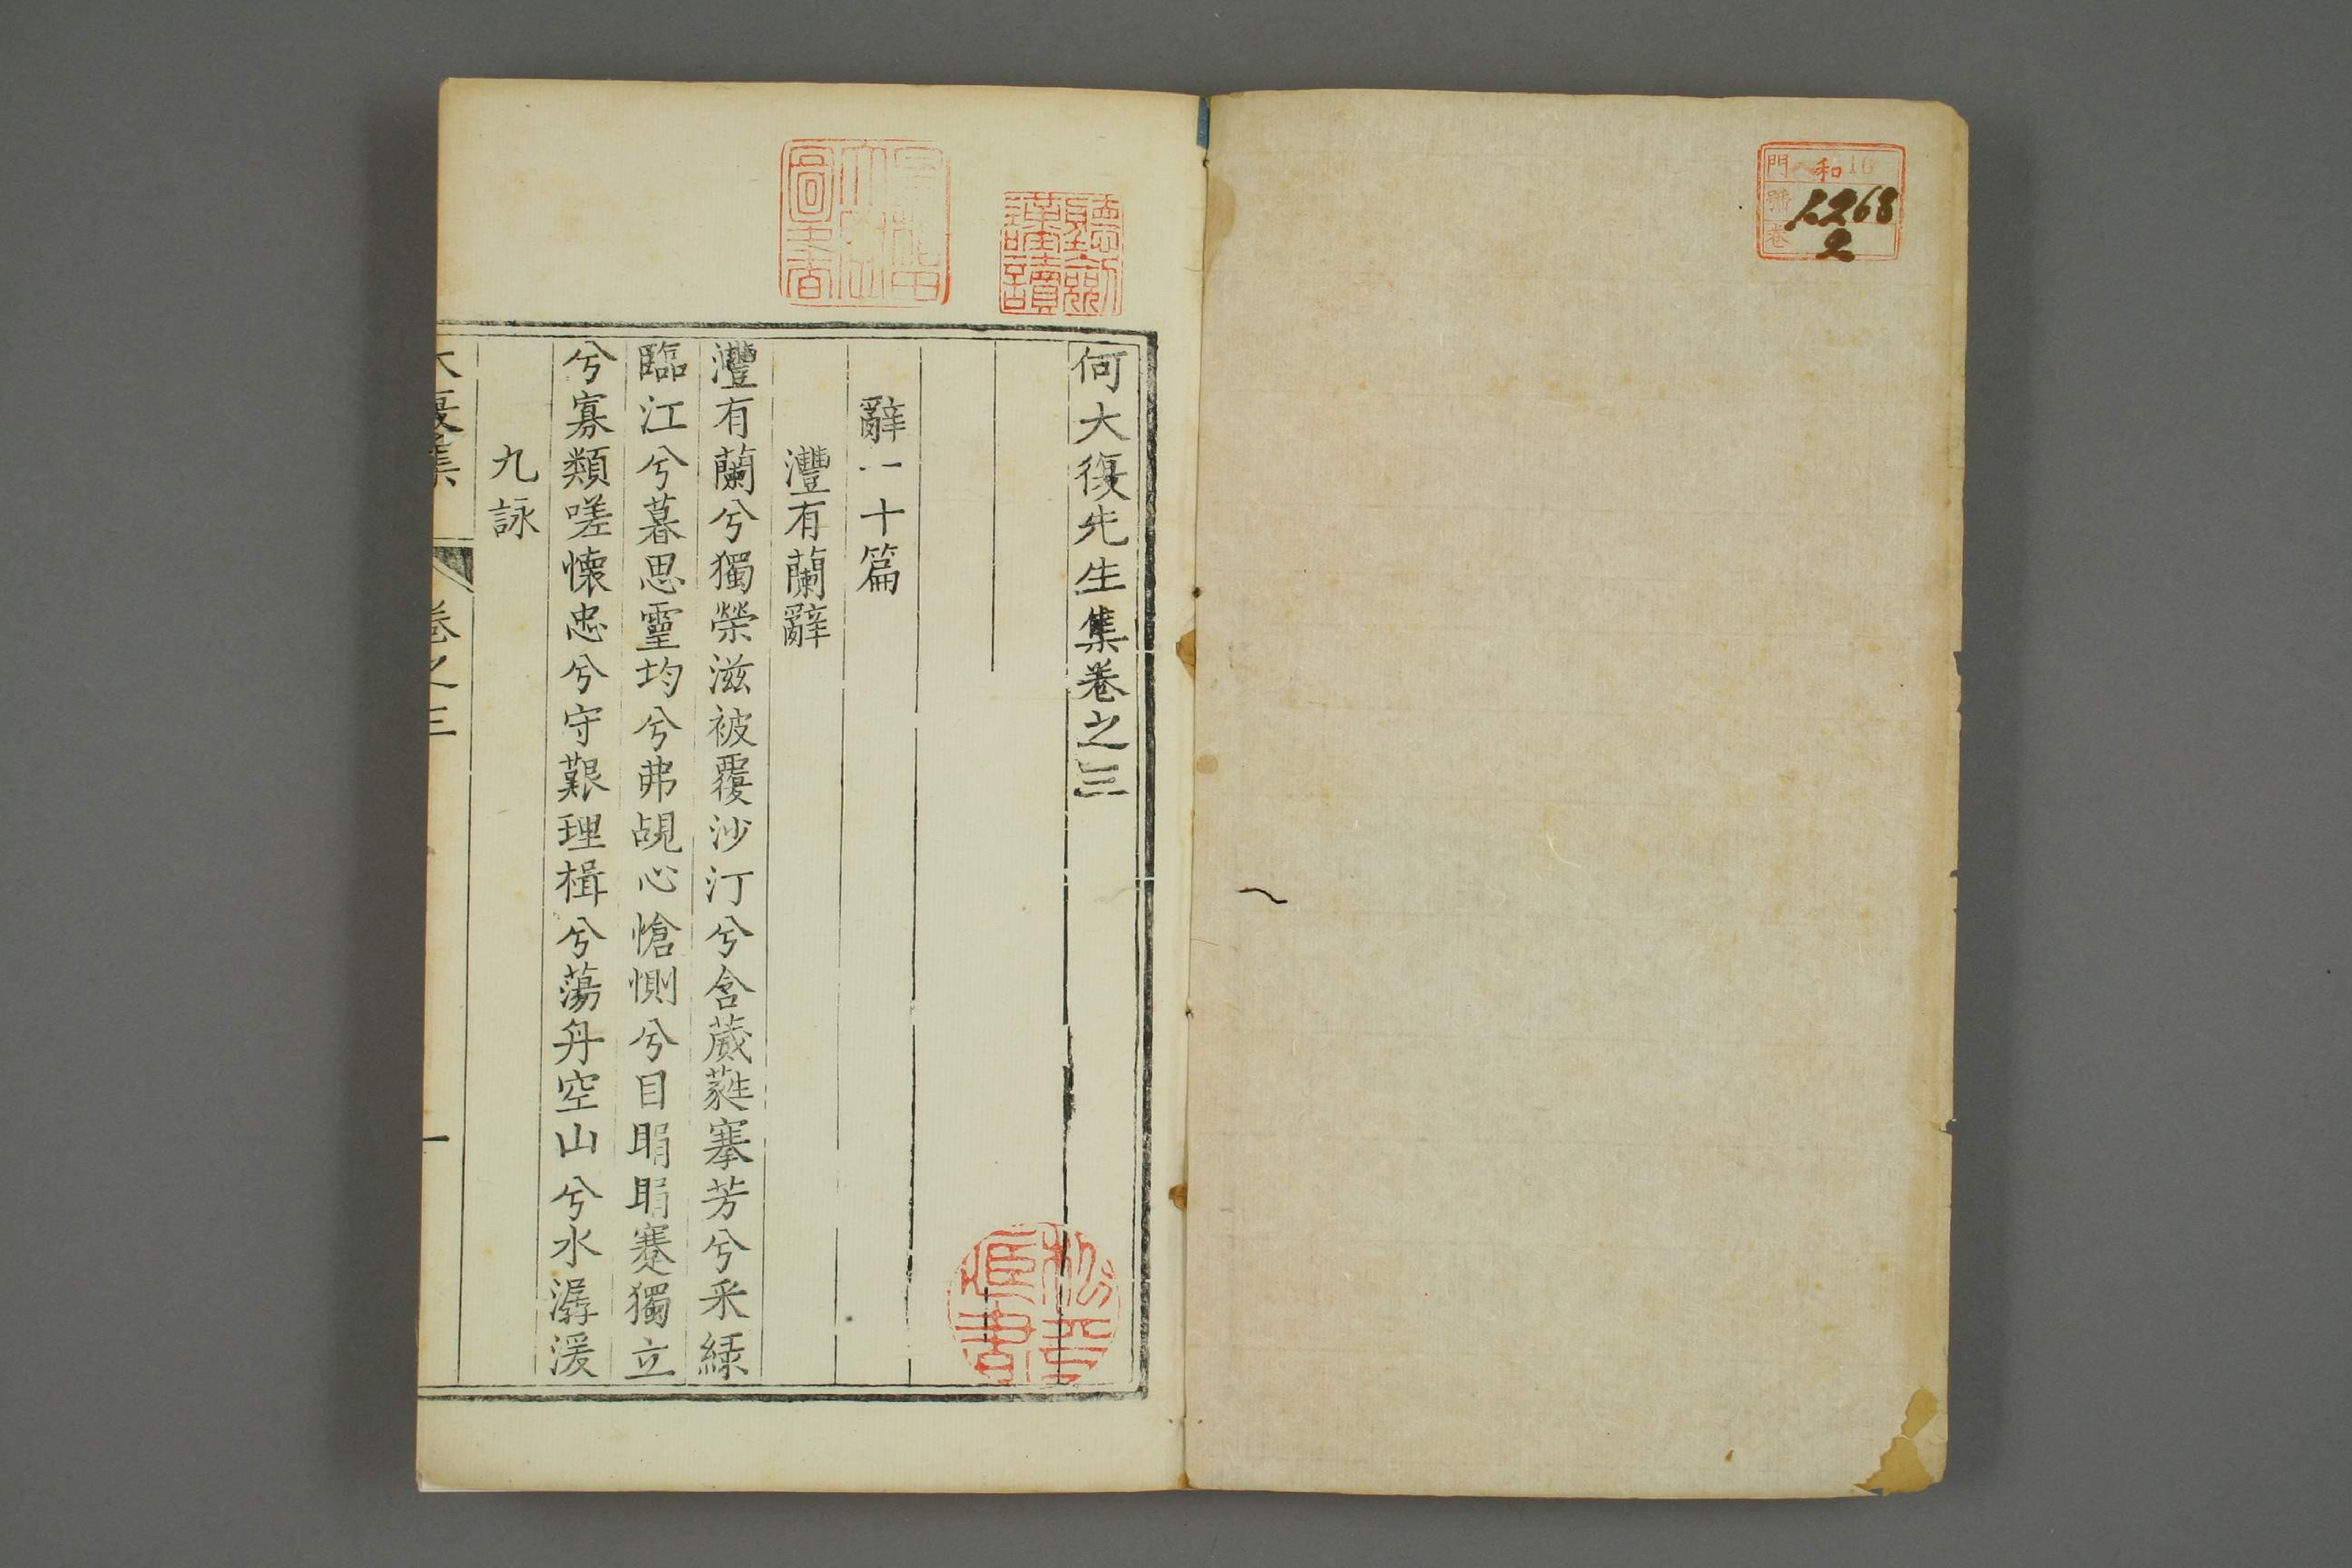 門 和 16
號 1268
卷 2
何大復先生集卷之三
辭一十篇
灃有蘭辭
灃有蘭兮獨榮滋被覆沙汀兮含葳蕤搴芳兮采綠
臨江兮暮思靈均兮弗覘心愴惻兮目睊睊蹇獨立
兮寡類嗟懷忠兮守艱理楫兮蕩舟空山兮水潺湲
九詠
大復集 卷之三 一
聽劍
謹讀
圖書